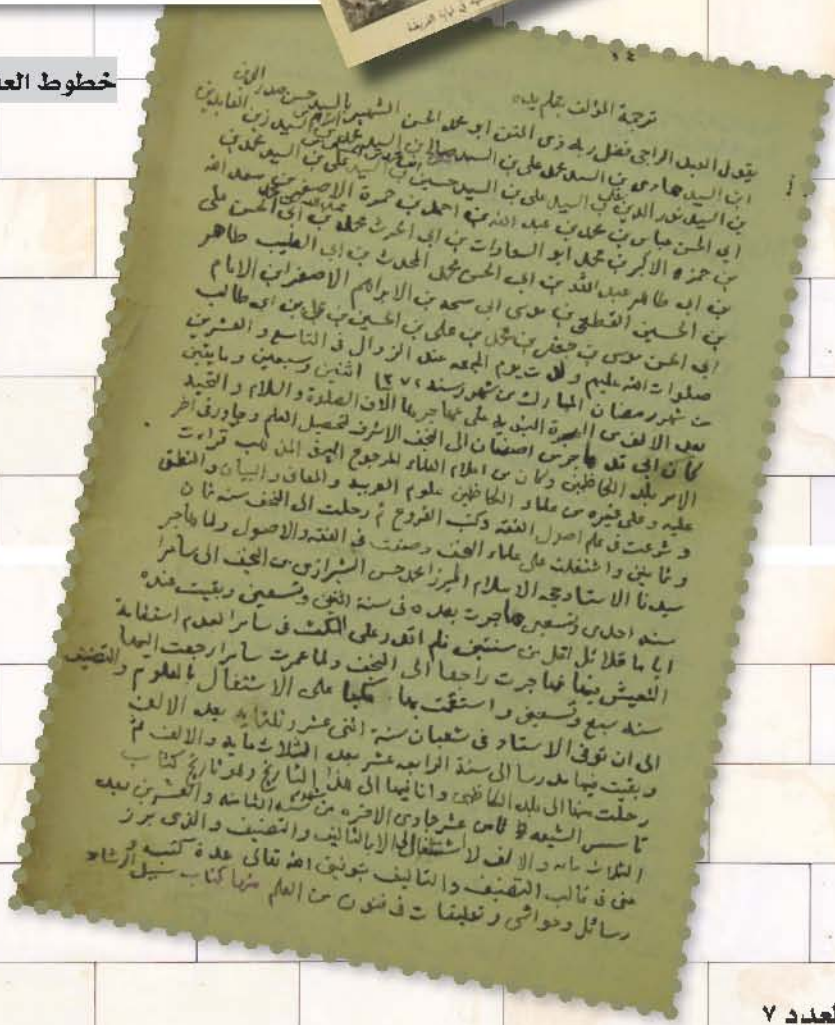 خطوط العد
ترجمة المؤلف بقلم يده
يقول العبد الراجي فضل ربه ذى المنن ابو محمد الحسن الشهير بالسيد حسن صدر الدين
ابن السيد هادى بن السيد محمد على بن السيد صالح بن السيد محمد بن السيد ابراهيم بن السيد زين العابدين
بن السيد نور الدين بن السيد على بن السيد حسين بن السيد على بن السيد محمد بن
ابي الحسن عباس بن محمد بن عبد الله بن احمد بن حمزة الاصغر بن سعد الله
بن حمزه الاكبر بن محمد ابو السعادات بن ابي الحرث محمد بن ابي الحسن على
بن ابي طاهر عبد الله بن ابي الحسن محمد المحدث بن ابي الطيب طاهر
بن الحسين القطعي بن موسى ابي سبحه بن الابراهيم الاصغر ابن الامام
ابي الحسن موسى بن جعفر بن محمد بن على بن الحسين بن على بن ابي طالب
صلوات الله عليهم ولدت يوم الجمعه عند الزوال فى التاسع والعشرين
من شهر رمضان المبارك من شهور سنه ١٢٧٢ اثنين وسبعين ومايتين
بعد الالف من الهجرة النبويه على مهاجرها الاف الصلوة والسلام والتحيه
كان ابي قد هاجر من اصفهان الى النجف الاشرف لتحصيل العلم وجاور فى اخر
الامر بلد الكاظمين وكان من اعلام العلماء المرجوع اليهم قراءت
عليه وعلى غيره من علماء الكاظمين علوم العربيه والمعانى والبيان والمنطق
وشرعت فى علم اصول الفقه وكتب الفروع ثم رحلت الى النجف سنه ثمان
وثمانين واشتغلت على علماء النجف وصنفت فى الفقه والاصول ولما هاجر
سيدنا الاستاد حجه الاسلام الميرزا محمد حسن الشيرازى من النجف الى سامرا
سنه احدى وتسعين هاجرت بعده فى سنة اثنين وتسعين وبقيت عنده
اياما قلائل اقل من سنتين فلم اقدر على المكث فى سامرا لعدم استقامة
التعيش بها فهاجرت راجعا الى النجف ولما عمرت سامرا رجعت اليها
سنه سبع وتسعين واستقمت بها مكبا على الاشتغال بالعلوم والتصنيف
الى ان توفى الاستاد فى شعبان سنة اثنى عشر وثلثمايه بعد الالف
وبقيت فيها مدرسا الى سنة الرابعه عشر بعد الثلاث مايه والالف ثم
رحلت منها الى بلد الكاظمين وانا فيها الى هذا التاريخ وهو تاريخ كتاب
تاسس الشيعه عشر جمادى الاخره من شهور سنه الثامنه والعشرين بعد
الثلاث مائه والالف لا اشتغال لى الا بالتاليف والتصنيف والذى برز
منى فى قالب التصنيف والتاليف بتوفيق الله تعالى عدة كتب و
رسائل وحواشى وتعليقات فى فنون من العلم منها كتاب سبيل الرشاد
العدد ٧